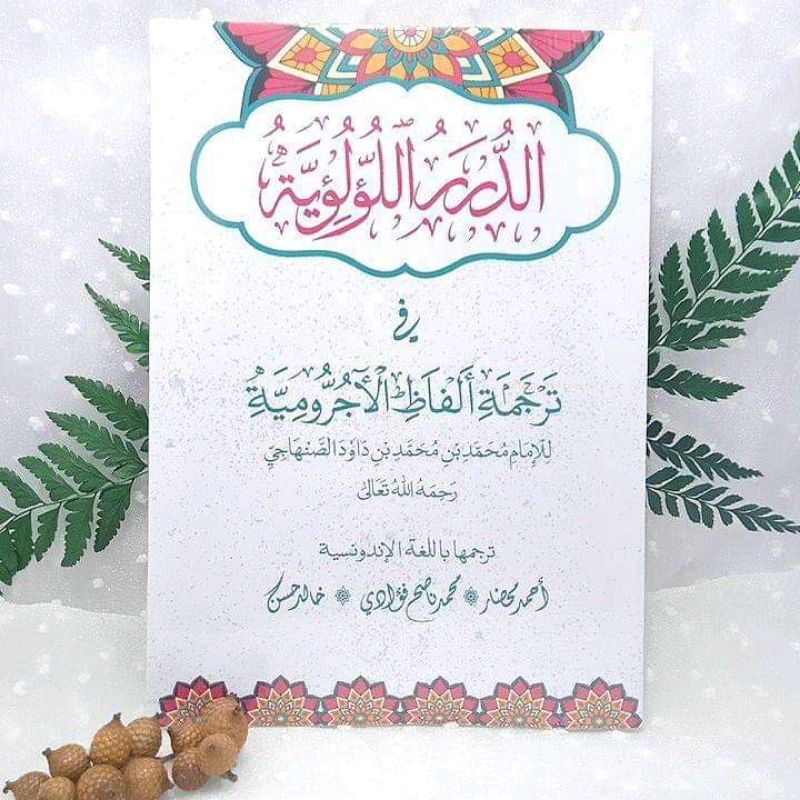 الدُّرَرُ اللُّؤْلُؤِيَّةُ
في
تَرْجَمَةِ أَلْفَاظِ الْآجُرُّومِيَّةِ
لِلْإِمَامِ مُحَمَّدِ بْنِ مُحَمَّدِ بْنِ دَاوُدَ الصَّنْهَاجِيّ
رَحِمَهُ اللهُ تَعَالَى
ترجمها باللغة الإندونسية
أحمد محضار محمد ناصح فؤادي خالد حسن